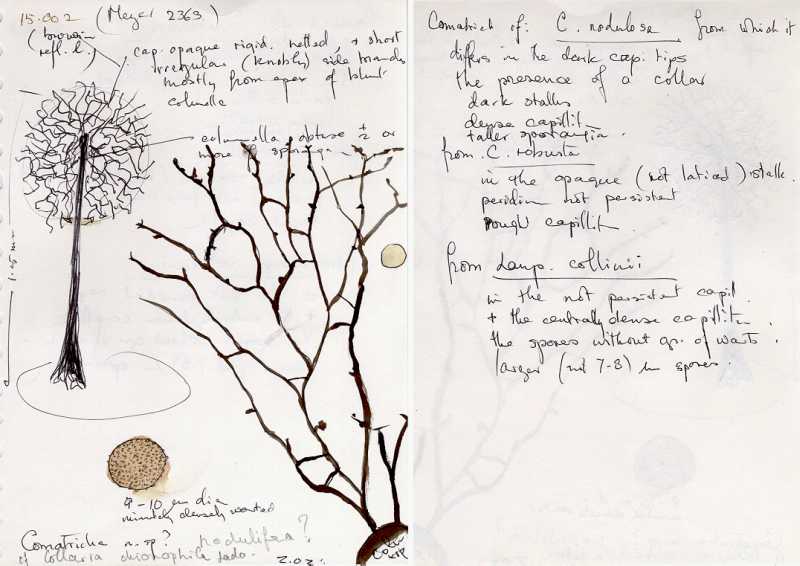 15.002 (Meyer 2363)
(brown in
refl. l.)
cap. opaque rigid. netted, + short
irregular (knobby) side branch
mostly from apex of blunt
columella
columella obtuse ± ½ or
more of sporangia
1.25 mm
9-10 um dia
minutely densely warted
Comatricha n. sp? nodulifera?
cf collaria chionophila Lado.
Comatrich cf: C. nodulosa from which it
differs in the dark cap. tips
the presence of a collar
dark stalks
dense capillit
taller sporangia.
from C. robusta
in the opaque (not laticed) stalk.
peridium not persistent
rough capillit.
from Lamp. collinii
in the not persistent capil.
+ the centrally dense capillit.
the spores without gr. of warts.
larger (not 7-8) um spores.